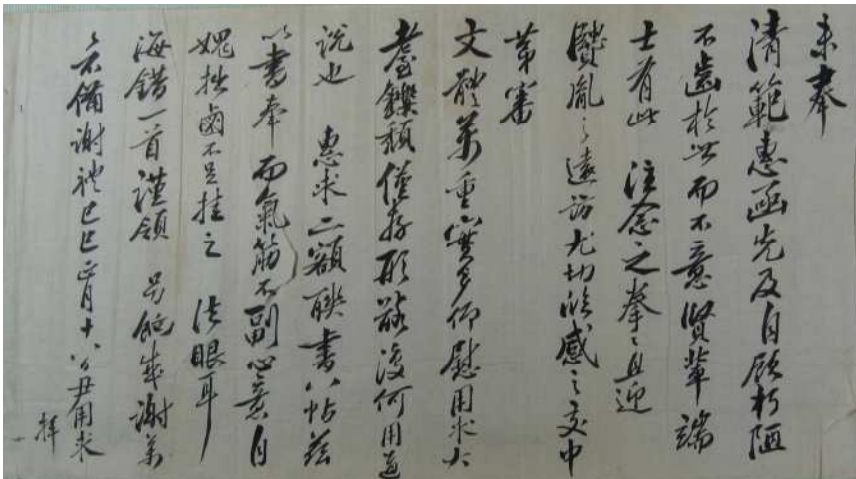 未奉
清範惠函先及自顧朽陋
不齒於世而不意賢輩端
士有此 注念之拳〻且迎
賢胤之遠訪尤切欣感之交中
苐審
文體萬重實多仰慰用求大
耋鑠頹僅存形骸復何用道
說也 惠求二額聯書八帖玆
以書奉而氣筋不副心意自
媿拙鹵不足掛之 法眼耳
海錯一首謹領 另餽感謝萬
〻不備謝禮己巳正月十八日尹用求
拜